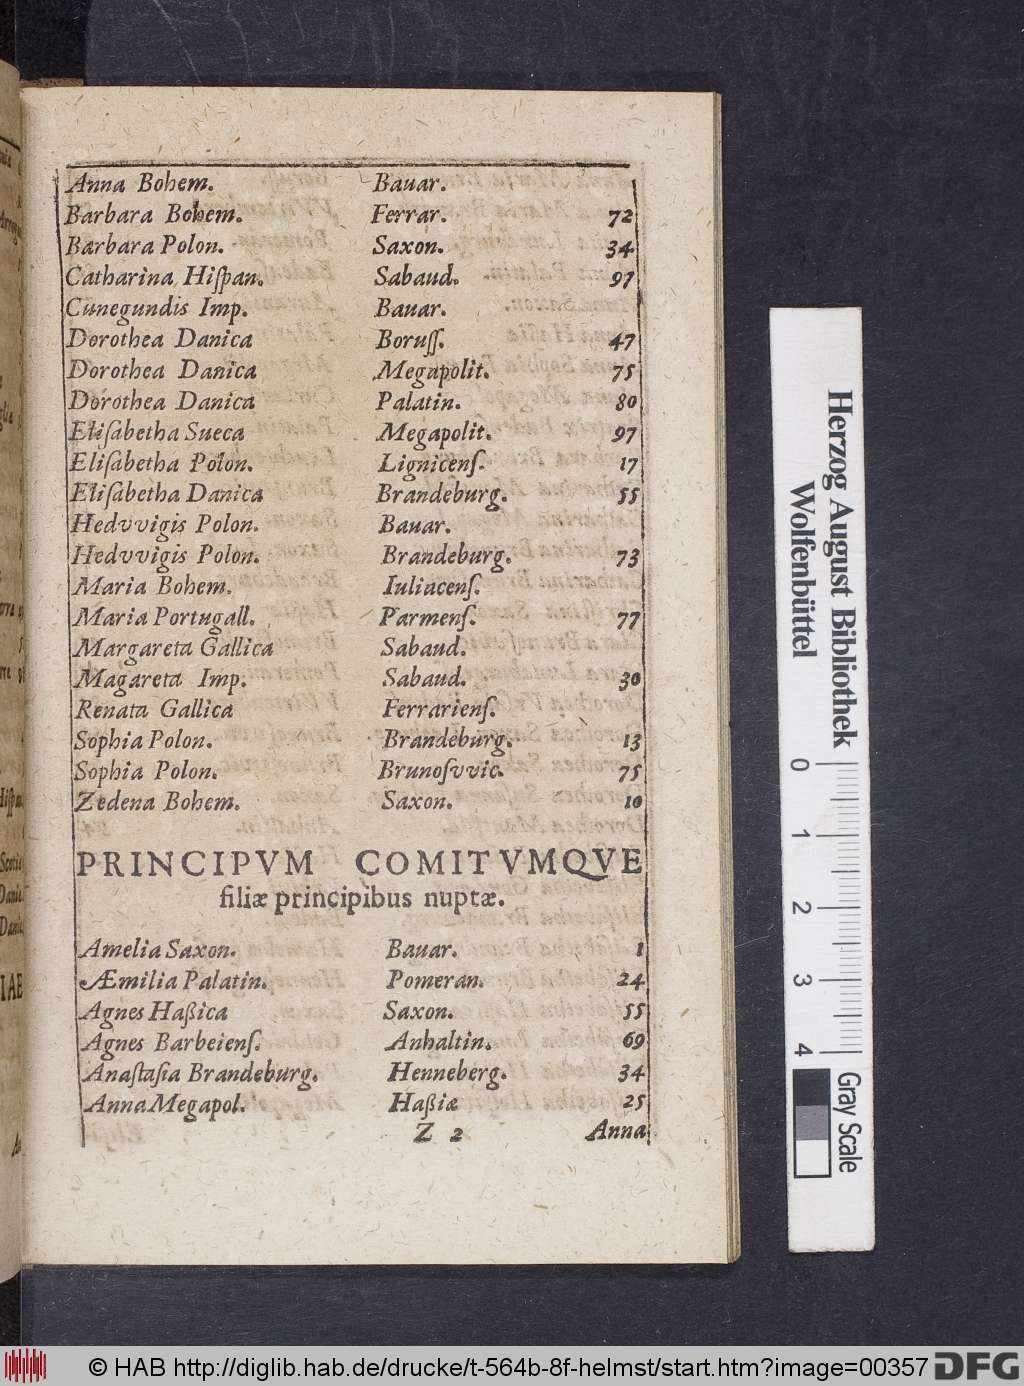 Anna Bohem. Bauar.
Barbara Bohem. Ferrar. 72
Barbara Polon. Saxon. 34
Catharina Hiſpan. Sabaud. 97
Cunegundis Imp. Bauar.
Dorothea Danica Boruſſ. 47
Dorothea Danica Megapolit. 75
Dorothea Danica Palatin. 80
Eliſabetha Sueca Megapolit. 97
Eliſabetha Polon. Lignicenſ. 17
Eliſabetha Danica Brandeburg. 55
Hedvvigis Polon. Bauar.
Hedvvigis Polon. Brandeburg. 73
Maria Bohem. Iuliacenſ.
Maria Portugall. Parmenſ. 77
Margareta Gallica Sabaud.
Magareta Imp. Sabaud. 30
Renata Gallica Ferrarienſ.
Sophia Polon. Brandeburg. 13
Sophia Polon. Brunoſvvic. 75
Zedena Bohem. Saxon. 10
PRINCIPVM COMITVMQVE
filiæ principibus nuptæ.
Amelia Saxon. Bauar. 1
Æmilia Palatin. Pomeran. 24
Agnes Haßica Saxon. 55
Agnes Barbeienſ. Anhaltin. 69
Anaſtaſia Brandeburg. Henneberg. 34
Anna Megapol. Haßiæ 25
Z 2 Anna
Herzog August Bibliothek
Wolfenbüttel
0 1 2 3 4
Gray Scale
© HAB http://diglib.hab.de/drucke/t-564b-8f-helmst/start.htm?image=00357
DFG